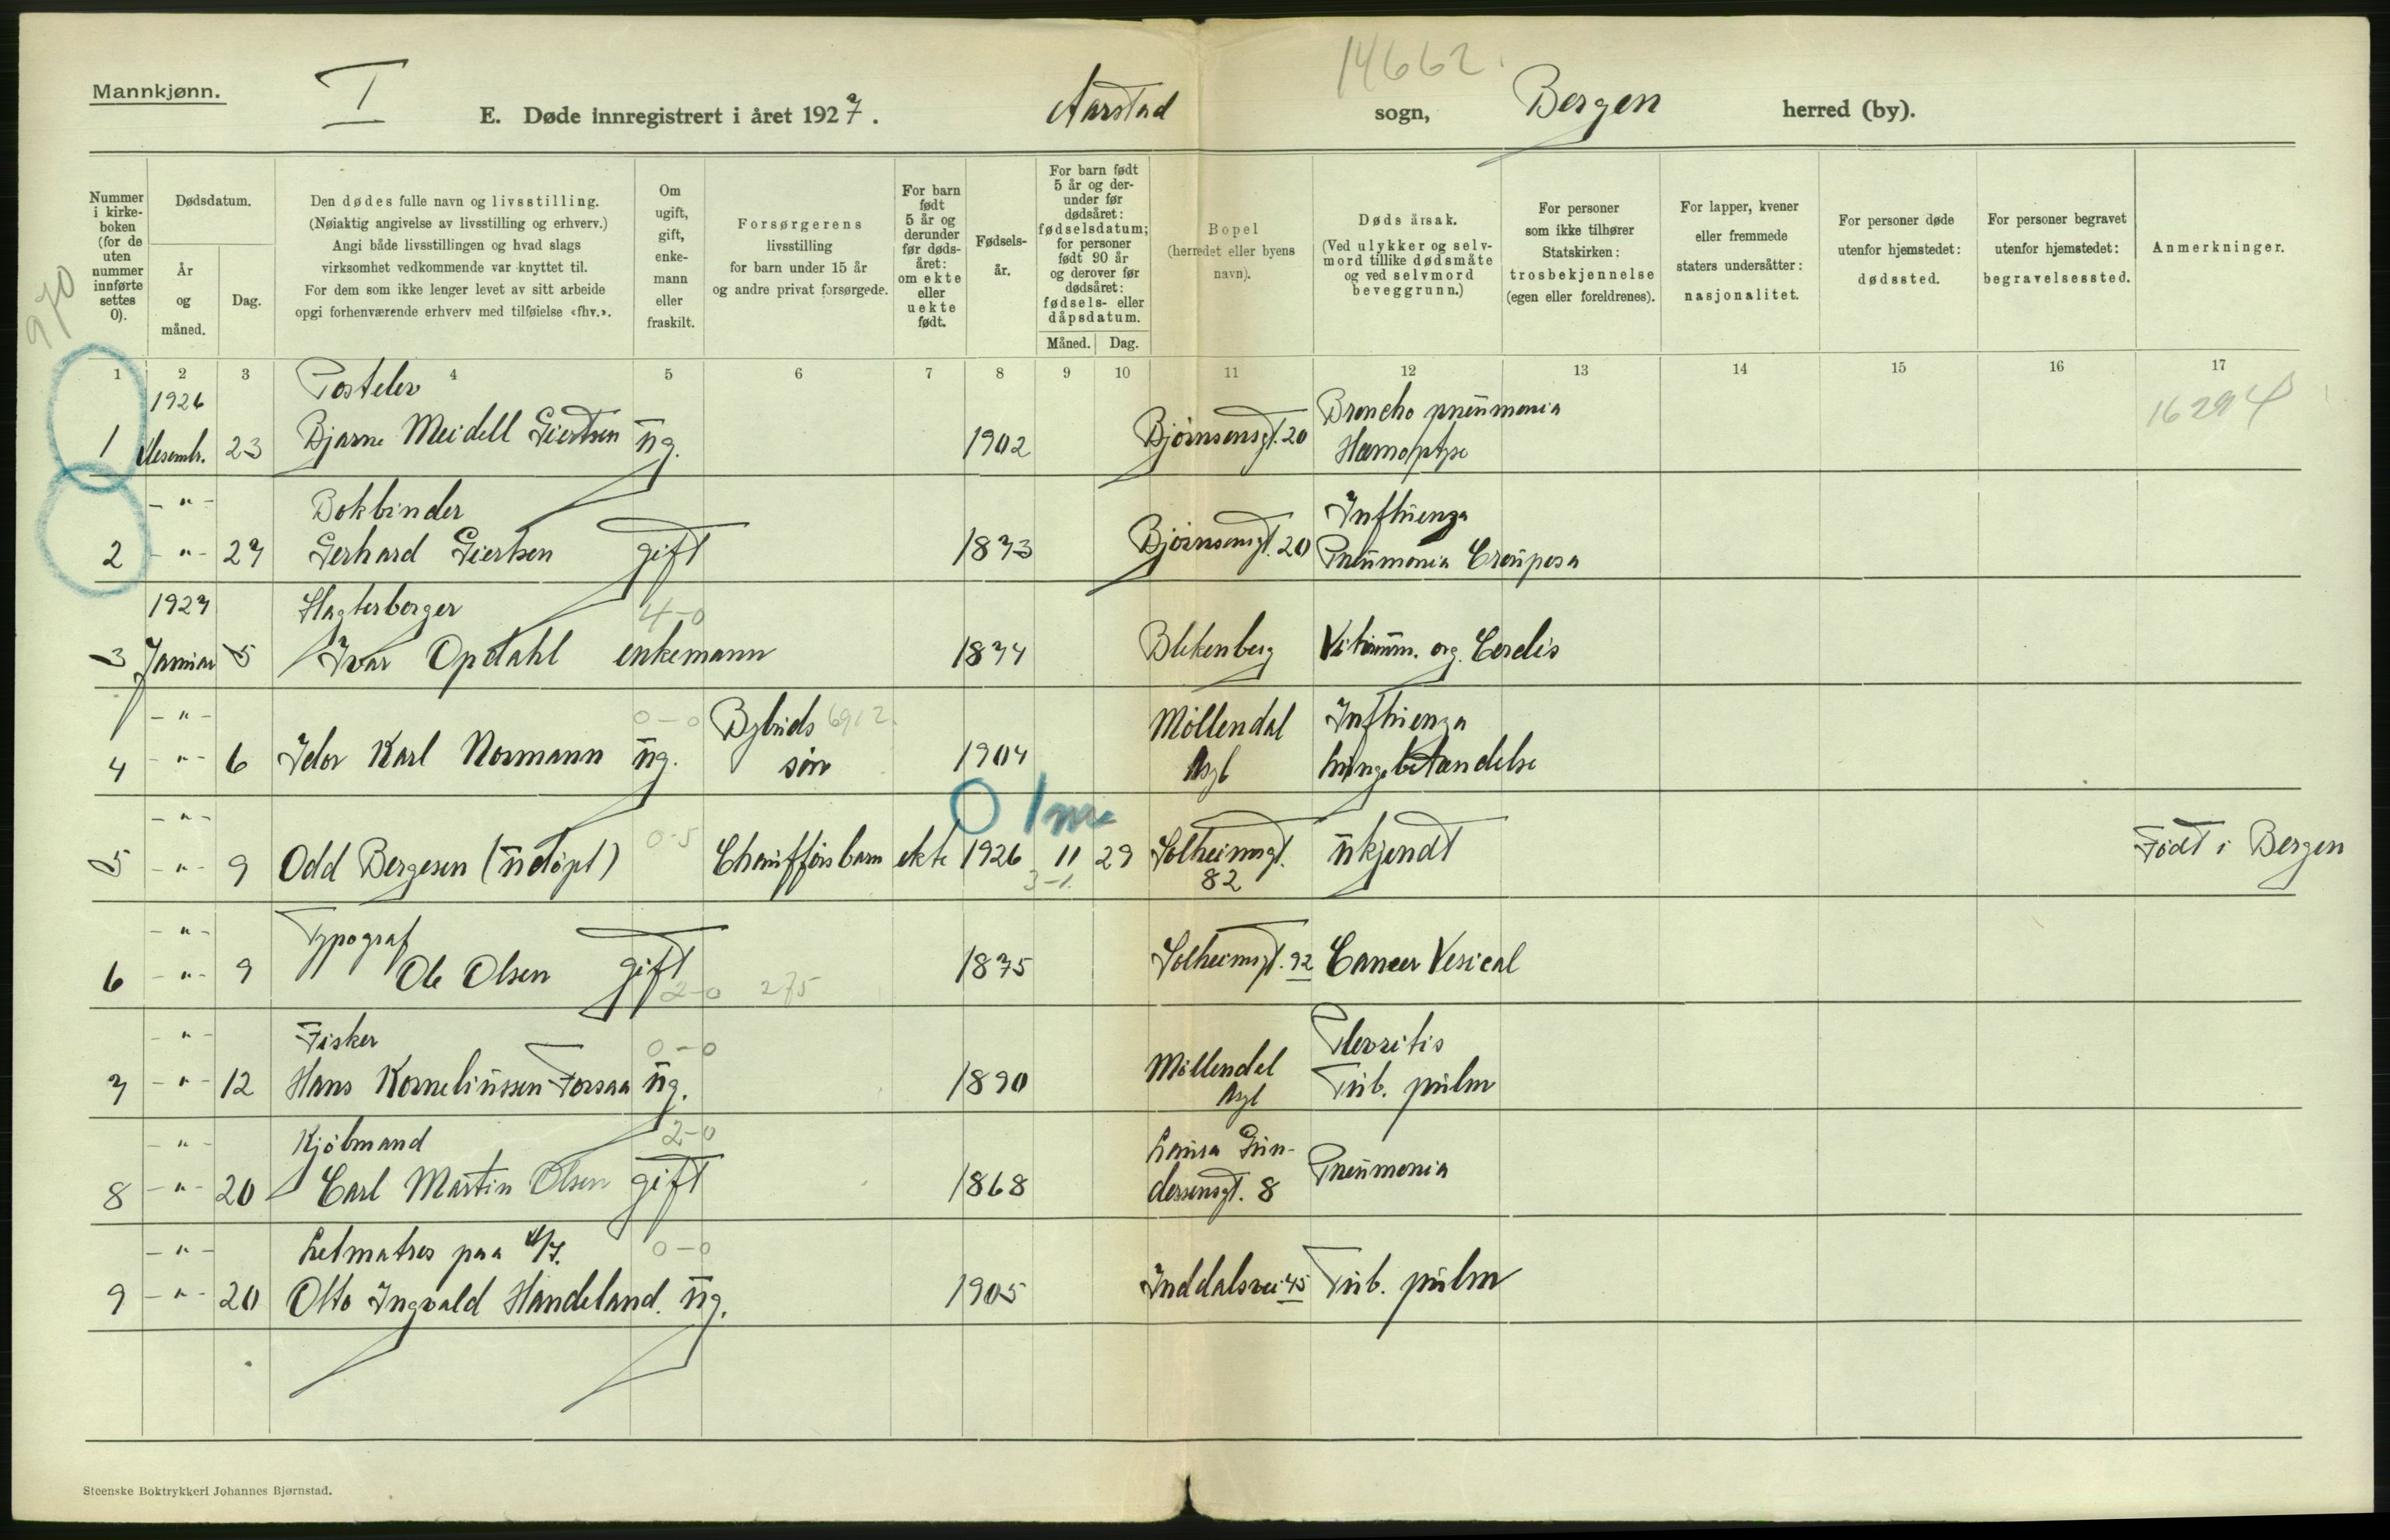 14662.
Mannkjønn.
I
E. Døde innregistrert i året 1927.
Aarstad sogn, Bergen herred (by).
970
Nummer i kirke- boken (for de uten nummer innførte settes 0).
Dødsdatum.
År og måned.
Dag.
Den dødes fulle navn og livsstilling.
(Nøiaktig angivelse av livsstilling og erhverv.)
Angi både livsstillingen og hvad slags
virksomhet vedkommende var knyttet til.
For dem som ikke lenger levet av sitt arbeide
opgi forhenværende erhverv med tilføielse «fhv.».
Om ugift, gift, enke- mann eller fraskilt.
Forsørgerens
livsstilling
for barn under 15 år
og andre privat forsørgede.
For barn født 5 år og derunder før døds- året: om ekte eller uekte født.
Fødsels- år.
For barn født 5 år og der- under før dødsåret: fødselsdatum; for personer født 90 år og derover før dødsåret: fødsels- eller dåpsdatum.
Måned. Dag.
Bopel
(herredet eller byens
navn).
Døds årsak.
(Ved ulykker og selv-
mord tillike dødsmåte
og ved selvmord
beveggrunn.)
For personer
som ikke tilhører
Statskirken:
trosbekjennelse
(egen eller foreldrenes).
For lapper, kvener
eller fremmede
staters undersåtter:
nasjonalitet.
For personer døde
utenfor hjemstedet:
dødssted.
For personer begravet
utenfor hjemstedet:
begravelsessted.
Anmerkninger.
1 2 3 4 5 6 7 8 9 10 11 12 13 14 15 16 17
1926 Postelev Broncho pneumonia 16294
1 Desembr. 23 Bjarne Meidell Giertsen ug. 1902 Bjørnsonsgt. 20 Hæmoptyse
- " - Bokbinder Influenza
2 - " - 27 Gerhard Giertsen gift 1873 Bjørnsonsgt. 20 Pneumonia Crouposa
1927 Slagterborger 4-0
3 Januar 5 Ivar Opdahl enkemann 1834 Blekenberg Vitium. org. Cordis
- " - 0-0 Bybuds 6912. Møllendal Influenza
4 - " - 6 Idor Karl Normann ug. søn 1904 Asyl Lungebetændelse
- " - 0 1 m
5 - " - 9 Odd Bergesen (udøpt) 0-5 Chaufførs barn ekte 1926 11 29 Solheimsgt. ukjendt Født i Bergen
3-1. 82
- " - Typograf
6 - " - 9 Ole Olsen gift 1875 Solheimsgt. 92 Cancer Vesical
2-0 275
- " - Fisker 0-0 Plevritis
7 - " - 12 Hans Korneliussen Forsaa ug. 1890 Møllendal Asyl Tub. pulm
- " - Kjøbmand 2-0 Louisa Gun-
8 - " - 20 Carl Martin Olsen gift 1868 dersensgt. 8 Pneumonia
- " - Letmatros paa 0-0
9 - " - 20 Otto Ingvald Handeland. ug. 1905 Inddalsvei 45 Tub. pulm
Steenske Boktrykkeri Johannes Bjørnstad.